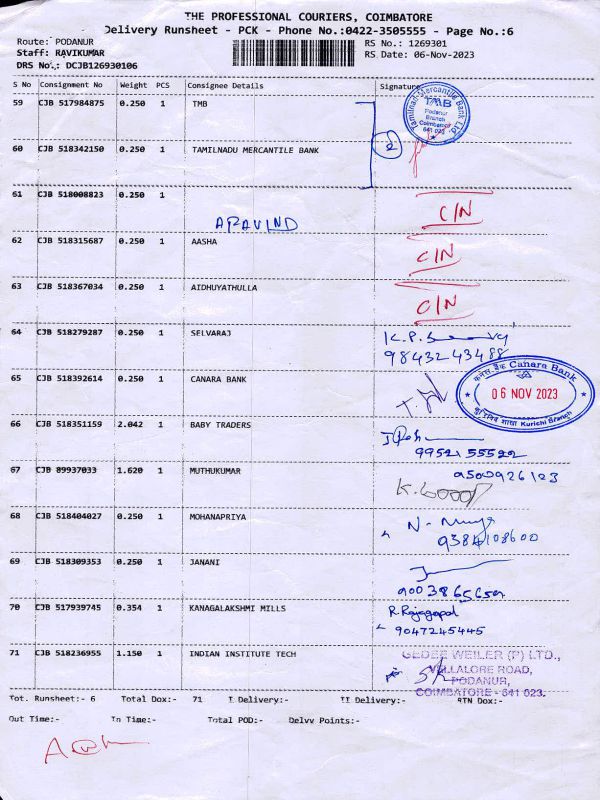 THE PROFESSIONAL COURIERS, COIMBATORE
Delivery Runsheet - PCK - Phone No.:0422-3505555 - Page No.:6
Route: PODANUR RS No.: 1269301
Staff: RAVIKUMAR RS Date: 06-Nov-2023
DRS No.: DCJB126930106
S No Consignment No Weight PCS Consignee Details Signature
59 CJB 517984875 0.250 1 TMB
Tamilnad Mercantile Bank Ltd.
TMB
Podanur
Branch
Coimbatore
641 023
60 CJB 518342150 0.250 1 TAMILNADU MERCANTILE BANK 2
61 CJB 518008823 0.250 1 ARAVIND C/N
62 CJB 518315687 0.250 1 AASHA C/N
63 CJB 518367034 0.250 1 AIDHUYATHULLA C/N
64 CJB 518279287 0.250 1 SELVARAJ K.P.
9843243488
65 CJB 518392614 0.250 1 CANARA BANK
केनरा बैंक Canara Bank
06 NOV 2023
Kurichi Branch
66 CJB 518351159 2.042 1 BABY TRADERS
67 CJB 89937033 1.620 1 MUTHUKUMAR
9500926123
68 CJB 518404027 0.250 1 MOHANAPRIYA
9384108600
69 CJB 518309353 0.250 1 JANANI
70 CJB 517939745 0.354 1 KANAGALAKSHMI MILLS R. Rajagopal
9047245445
71 CJB 518236955 1.150 1 INDIAN INSTITUTE TECH
GEDEE WEILER (P) LTD.,
VELLALORE ROAD,
PODANUR,
COIMBATORE - 641 023.
Tot. Runsheet:- 6 Total Dox:- 71 I Delivery:- II Delivery:- RTN Dox:-
Out Time:- In Time:- Total POD:- Delvv Points:-